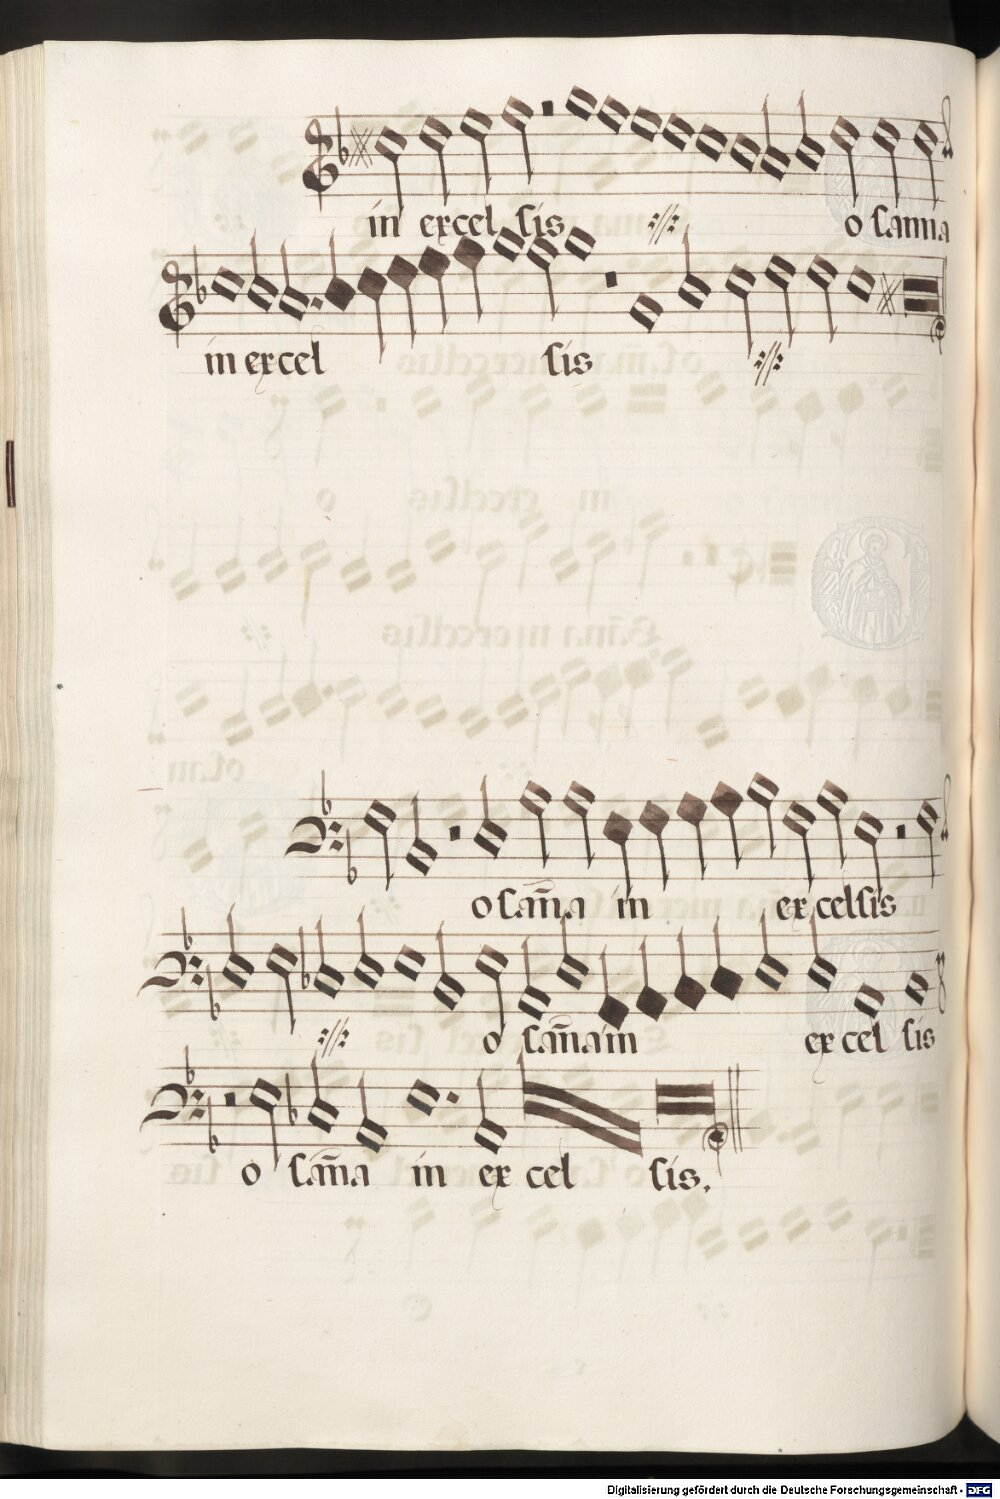 in excel sis o sanna
in excel sis
o sam̄a in ex celsis
o sam̄a in ex cel sis
o sam̄a in ex cel sis.
Digitalisierung gefördert durch die Deutsche Forschungsgemeinschaft - DFG